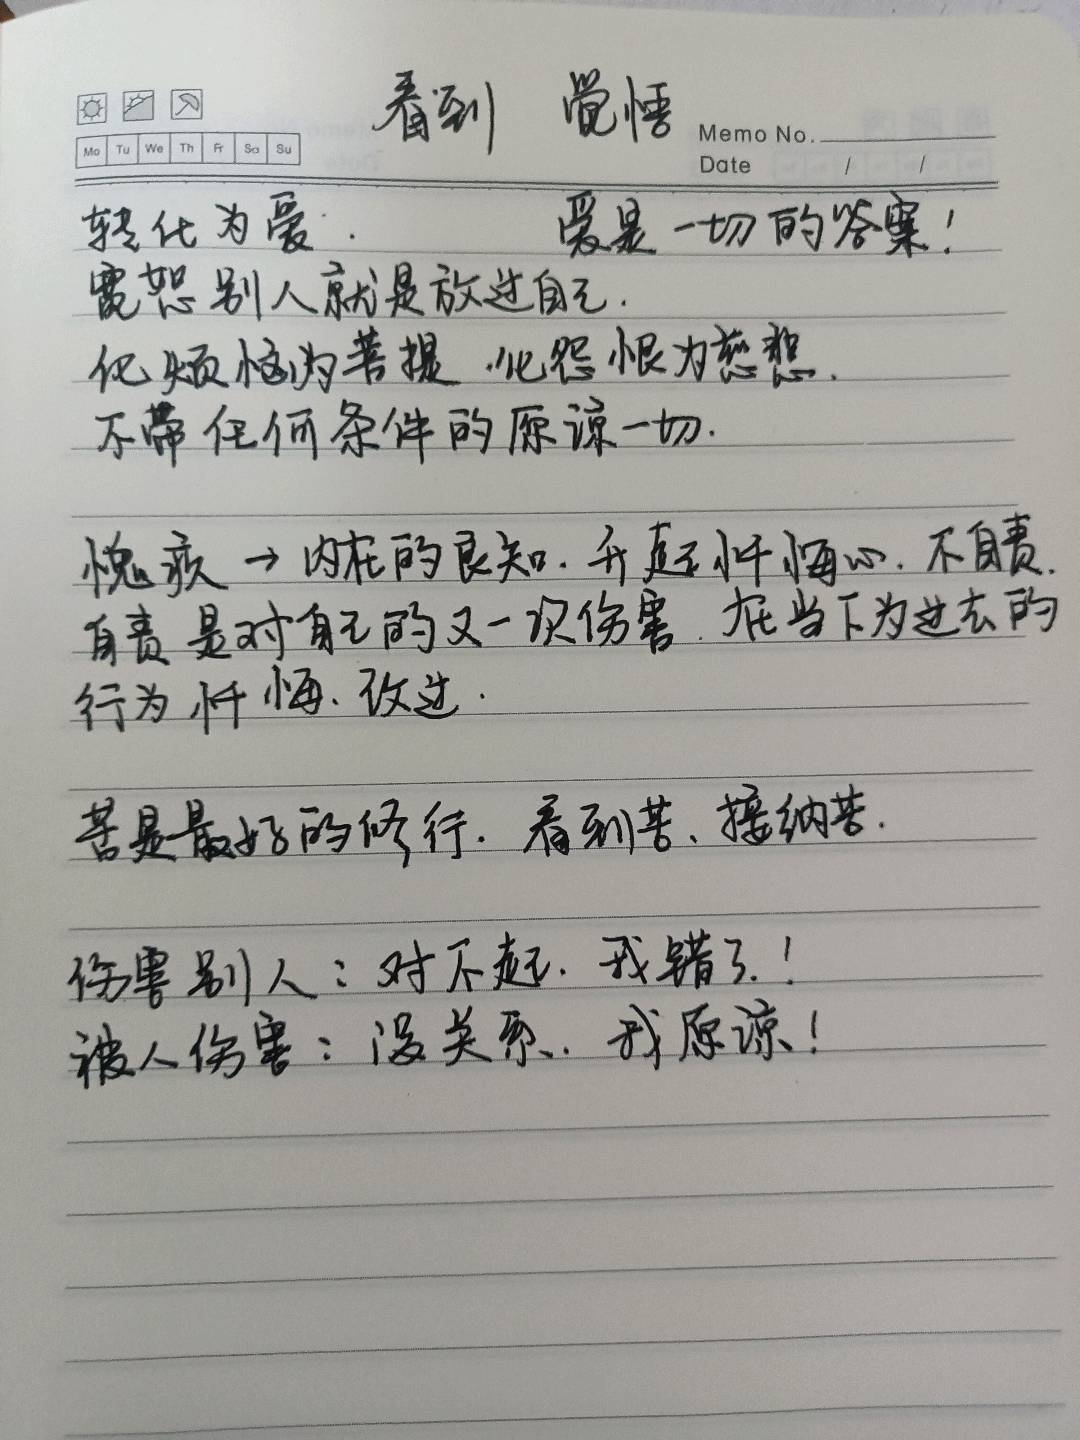 看到 觉悟
Memo No.
Mo Tu We Th Fr Sa Su
Date / /
转化为爱. 爱是一切的答案!
宽恕别人就是放过自己.
化烦恼为菩提.化怨恨为慈悲.
不带任何条件的原谅一切.
愧疚→内在的良知.升起忏悔心.不自责.
自责是对自己的又一次伤害.在当下为过去的
行为忏悔、改过.
苦是最好的修行.看到苦、接纳苦.
伤害别人:对不起.我错了!
被人伤害:没关系.我原谅!